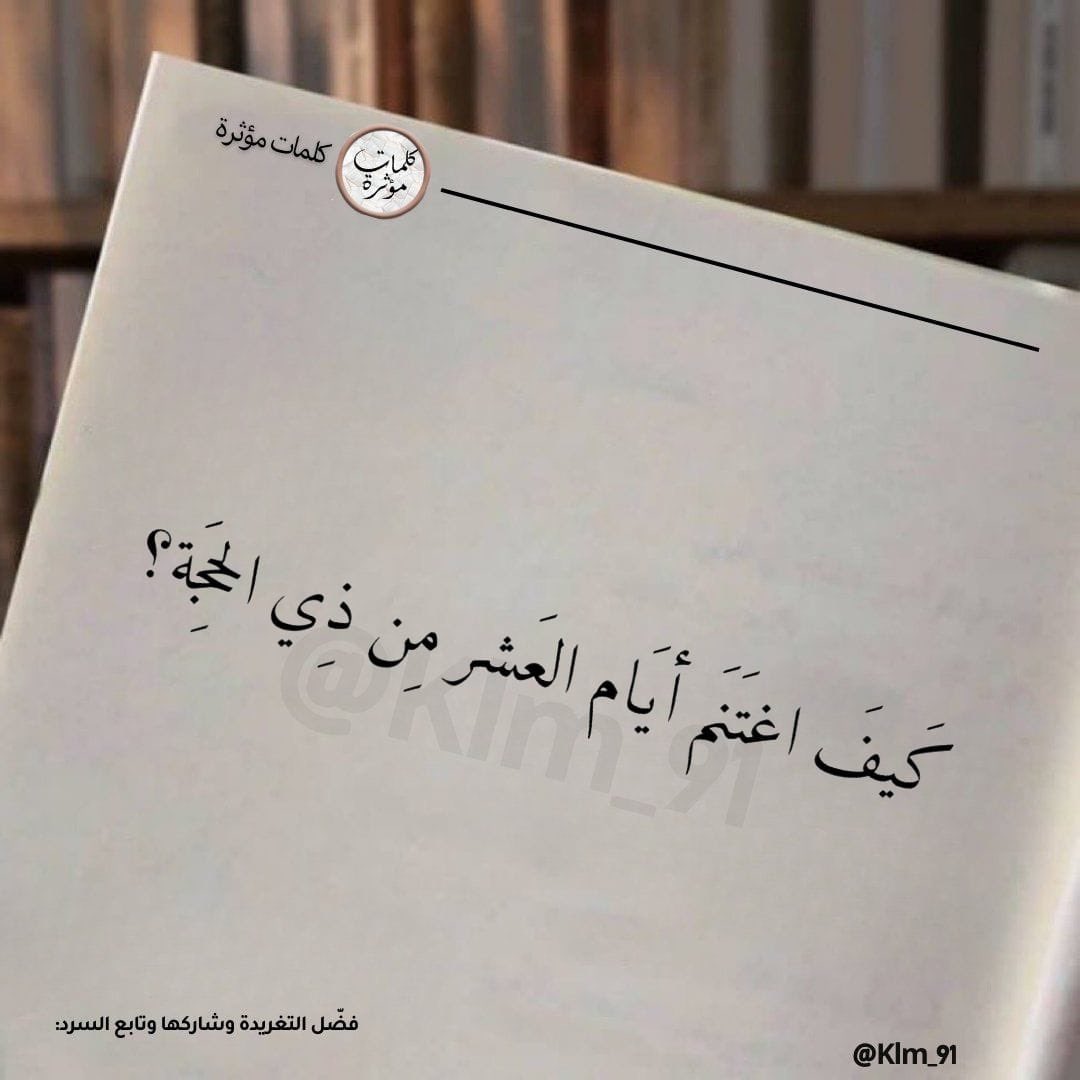 كلمات مؤثرة
كلمات
مؤثرة
كَيفَ اغتَنَم أيَام العَشر مِن ذِي الحَجِة؟
@Klm_91
فضّل التغريدة وشاركها وتابع السرد:
@Klm_91